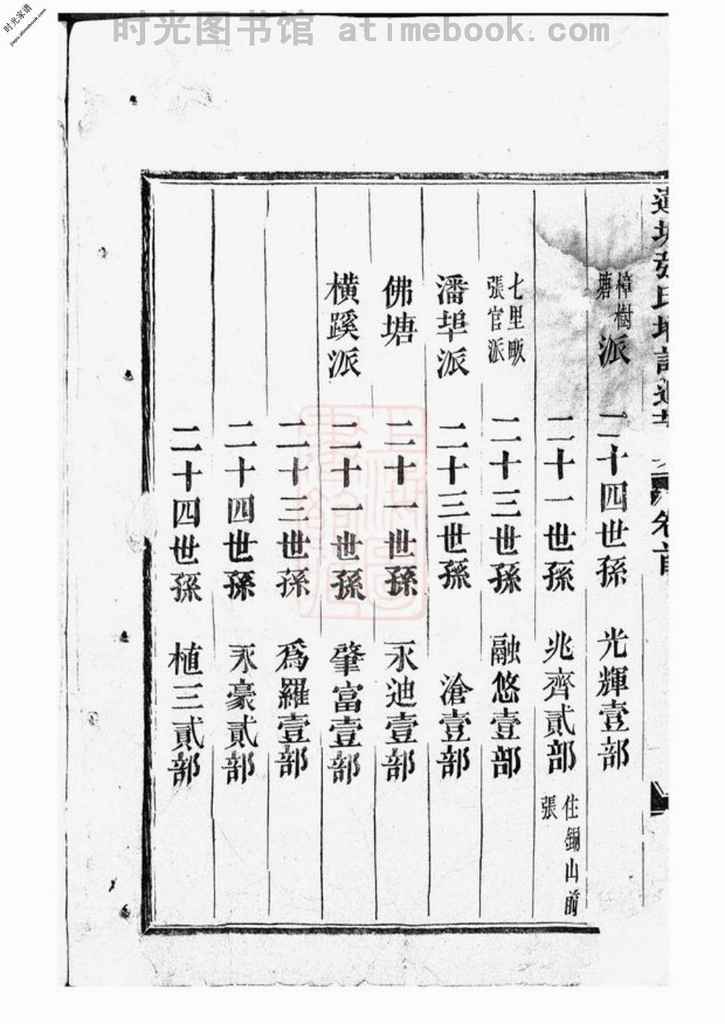 时光图书馆 atimebook.com
时光家谱
卷首
樟樹塘派 二十四世孫 光輝壹部
二十一世孫 兆齊貳部 住銅山前張
七里畈張官派 二十三世孫 融悠壹部
潘埠派 二十三世孫 滄壹部
佛塘 二十一世孫 永迪壹部
橫蹊派 二十一世孫 肇富壹部
二十三世孫 爲羅壹部
二十四世孫 永豪貳部
二十四世孫 植三貳部